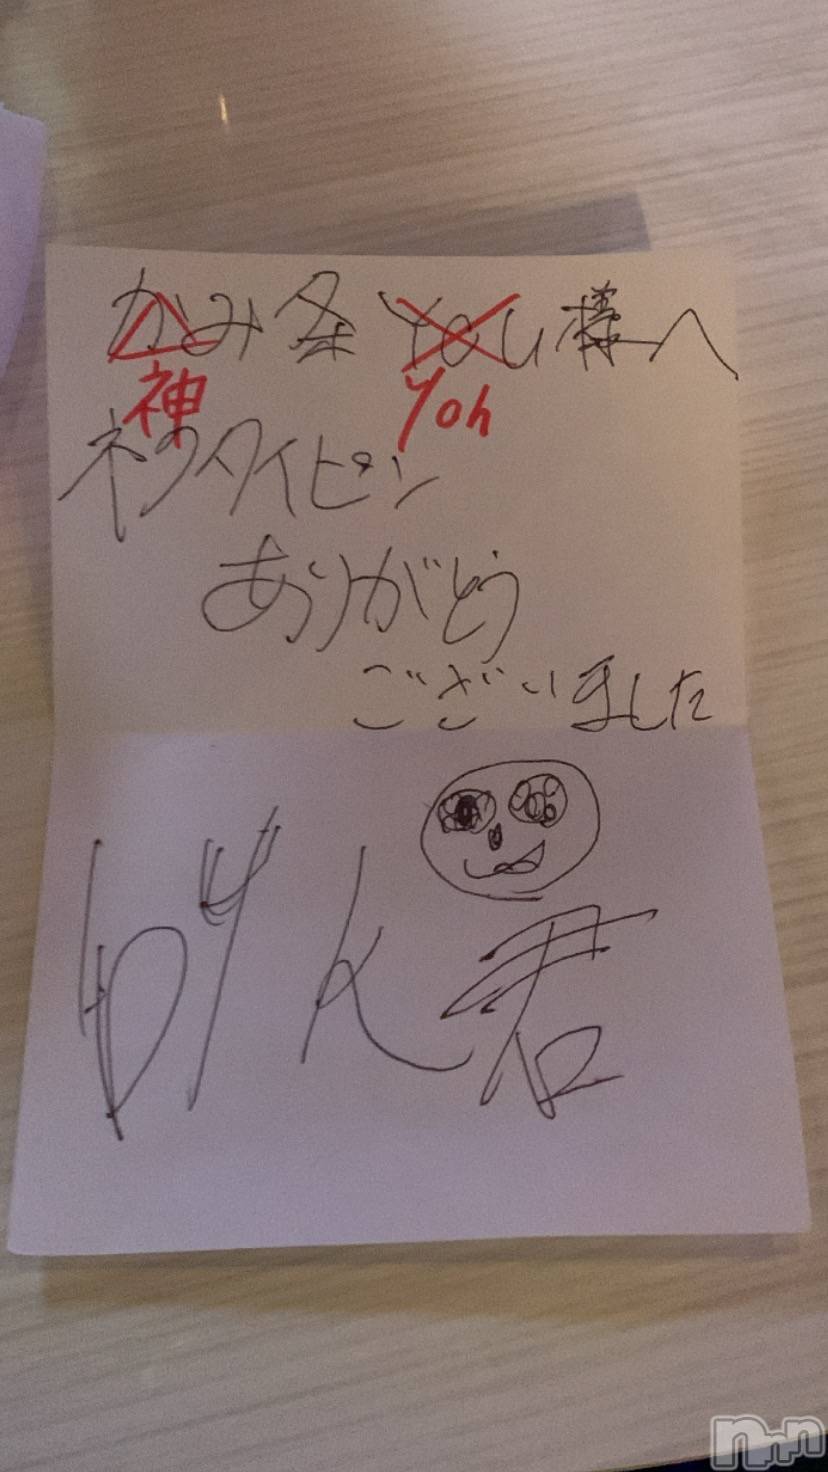 かみ条 You 様へ
神 Yoh
ネクタイピン
ありがとう
ございました
げん君